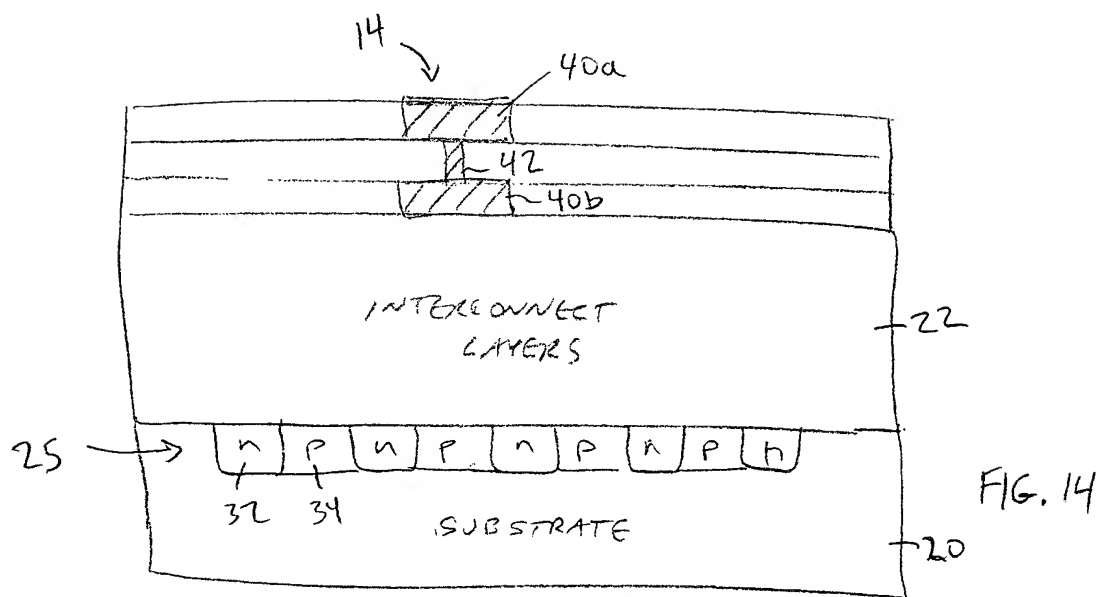 14
40a
42
40b
INTERCONNECT
LAYERS
22
25
n p n p n p n p n
32 34
SUBSTRATE
20
FIG. 14